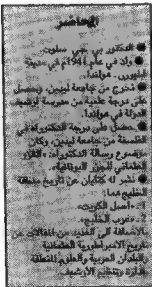 المحاضر
● الدكتور بي جي سلوت.
● ولد في عام ١٩٤١م في مدينة
هولندا.
● تخرج من جامعة ليدن، وحصل
على درجة علمية من مدرسة ارشيف
الدولة في هولندا.
● حصل على درجة الدكتوراه في
الفلسفة من جامعة ليدن، وكان
موضوع رسالة الدكتوراه:
● نشر له كتابان عن تاريخ منطقة
الخليج هما:
١- «أصل الكويت».
٢- «عرب الخليج».
بالاضافة الى العديد من المقالات عن
تاريخ الامبراطورية العثمانية
والبلدان العربية
الادارة وتنظيم الأرشيف.